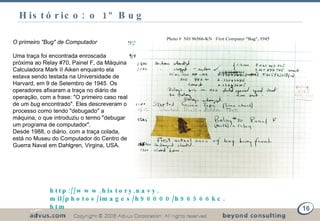 Histórico: o 1º Bug
Photo # NH 96566-KN First Computer "Bug", 1945
92
9/9
O primeiro "Bug" de Computador
Uma traça foi encontrada enroscada
próxima ao Relay #70, Painel F, da Máquina
Calculadora Mark II Aiken enquanto ela
estava sendo testada na Universidade de
Harvard, em 9 de Setembro de 1945. Os
operadores afixaram a traça no diário de
operação, com a frase: "O primeiro caso real
de um bug encontrado". Eles descreveram o
processo como tendo "debugado" a
máquina, o que introduziu o termo "debugar
um programa de computador".
Desde 1988, o diário, com a traça colada,
está no Museu do Computador do Centro de
Guerra Naval em Dahlgren, Virgina, USA.
Relay #70 Panel F
(moth) in relay.
First actual case of bug being found.
http://www.history.navy.
mil/photos/images/h96000/h96566kc.
htm
16
advus.com Copyright © 2008 Advus Corporation. All rights reserved. beyond consulting